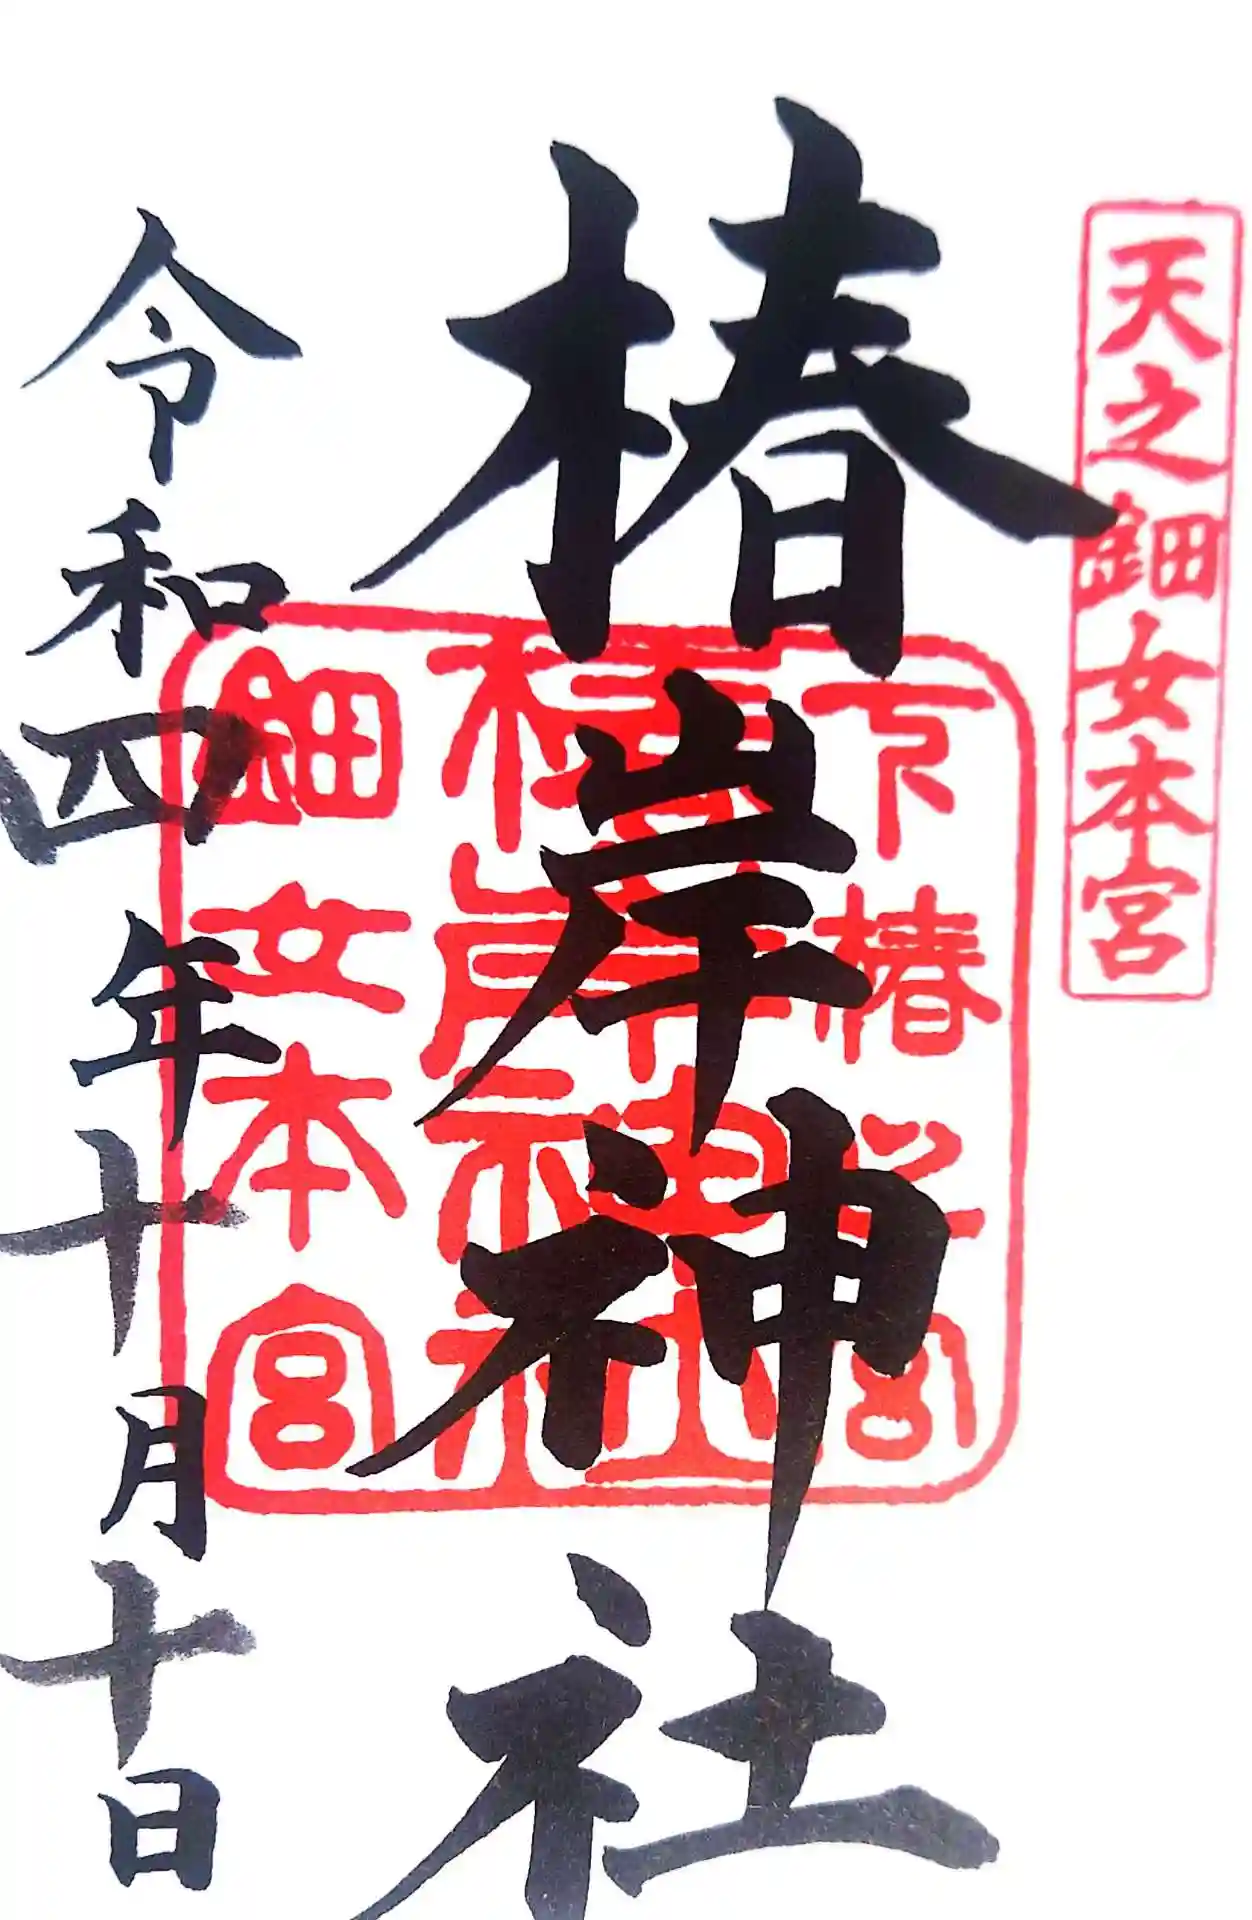 天之鈿女本宮
椿岸神社
下椿
宮
椿岸神社
鈿女本宮
令和四年十月十日